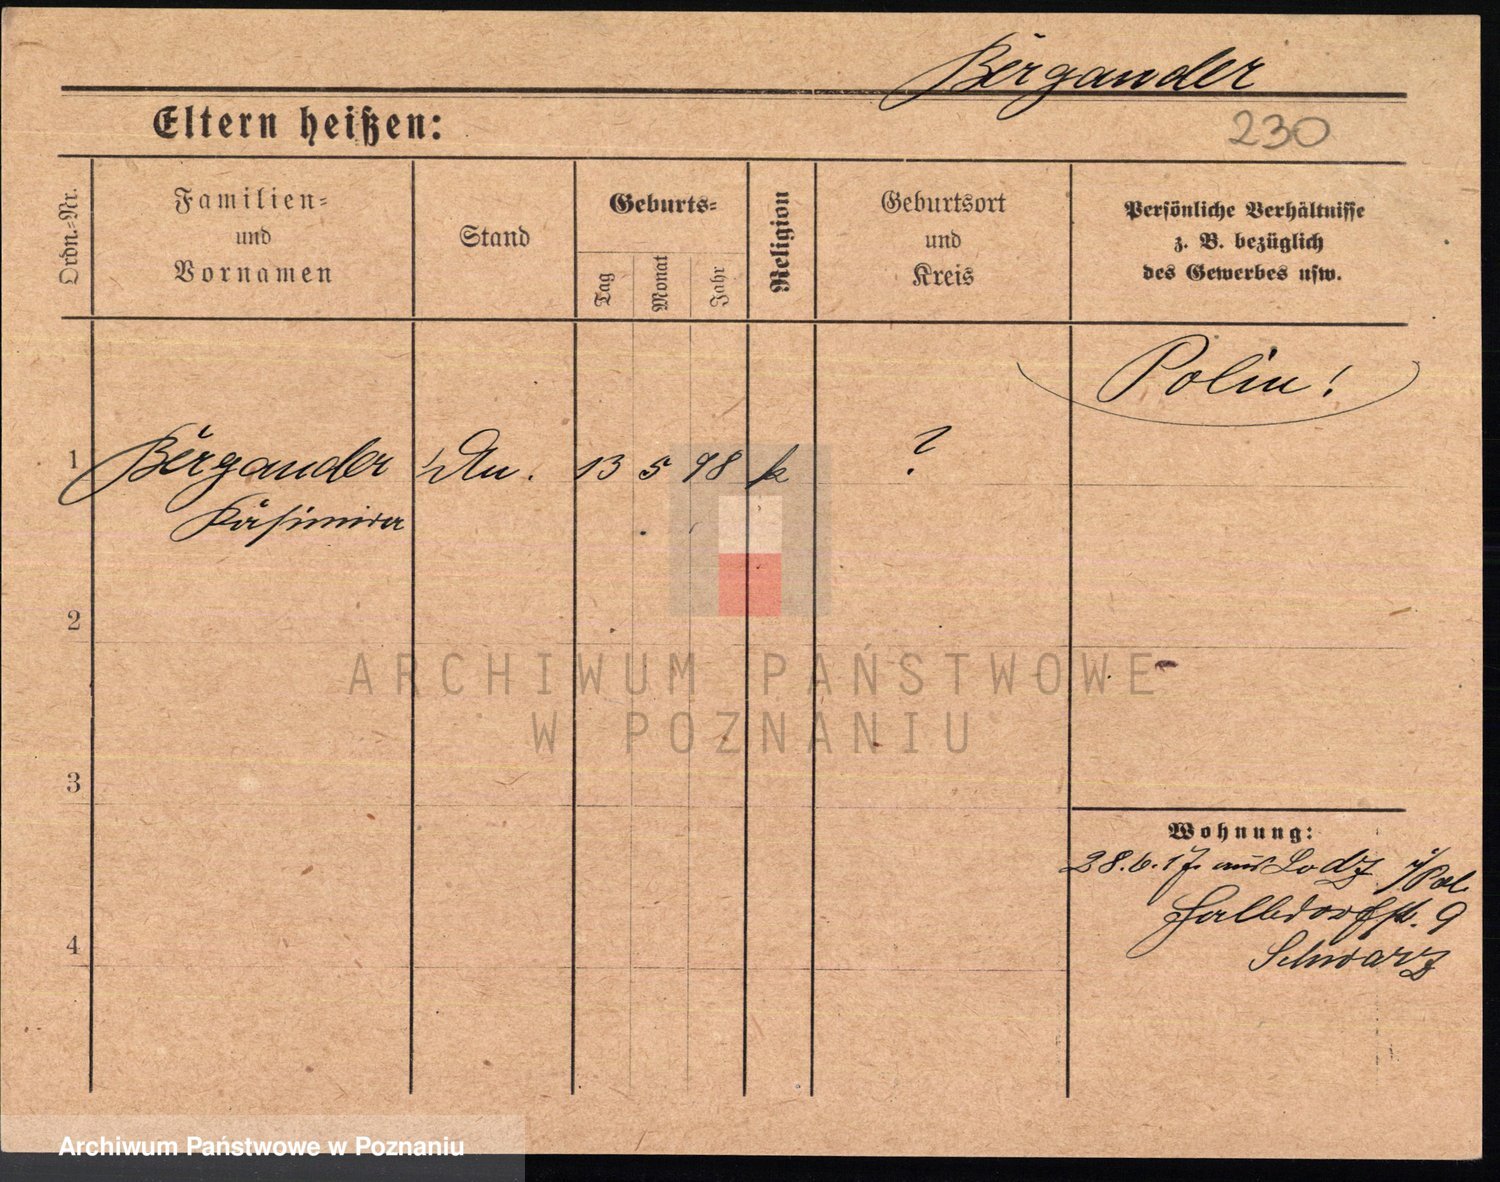 Bergander
230
Eltern heißen:
Ordn.-Nr.
Familien-
und
Vornamen
Stand
Geburts-
Tag
Monat
Jahr
Religion
Geburtsort
und
Kreis
Persönliche Verhältnisse
z. B. bezüglich
des Gewerbes usw.
Polin!
1 Bergander 13 5 98 k ?
Kasimira
2
3
4
Wohnung:
28.6.17. aus Lodz
9
Schwarz
ARCHIWUM PAŃSTWOWE
W POZNANIU
Archiwum Państwowe w Poznaniu